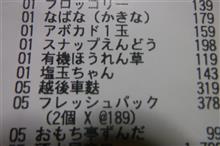 01 ブロッコリー 139
01 なばな(かきな) 179
01 アボカド1玉 159
01 スナップえんどう 198
01 有機ほうれん草 151
01 塩玉ちゃん 143
05 越後車麩 319
05 フレッシュパック 378
(2個 X @189)
05 おもち亭ずんだ 99